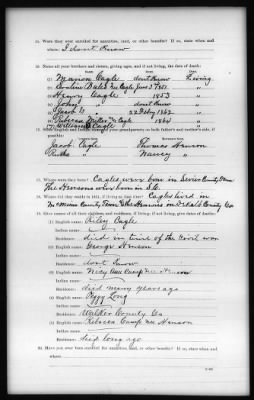 14. Were they ever enrolled for annuities, land, or other benefits? If so, state when and
where: I dont know
15. Name all your brothers and sisters, giving ages, and if not living, the date of death:
(1) Marion Cagle dont know Living
(2) Evaline Bates nee Cagle June 3rd 1851 "
(3) Henry Cagle 1853 "
(4) John " dont know "
(5) Jacob C " 22 Feby 1862 "
(6) Rebecca nee Cagle 1865 "
(7) William Cagle
16. State English and Indian names of your grandparents on both father's and mother's side, if
possible:
Jacob Cagle Thomas Henson
" Nancy "
17. Where were they born? Cagles were born in Sevier County Tenn
The Hensons were born in S.C.
18. Where did they reside in 1851, if living at that time? Cagles lived in
McMinn County Tenn The Hensons in DeKalb County Ga
19. Give names of all their children, and residence, if living; if not living, give dates of deaths:
(1) English name: Riley Cagle
Indian name:
Residence: died in time of the Civil war
(2) English name: George Henson
Indian name:
Residence: dont know
(3) English name: Nicy Ann Camp nee Henson
Indian name:
Residence: died many years ago
(4) English name: Peggy Long
Indian name:
Residence: Walker County Ga
(5) English name: Rebecca Camp nee Henson
Indian name:
Residence: died long ago
20. Have you ever been enrolled for annuities, land, or other benefits? If so, state when and
where: